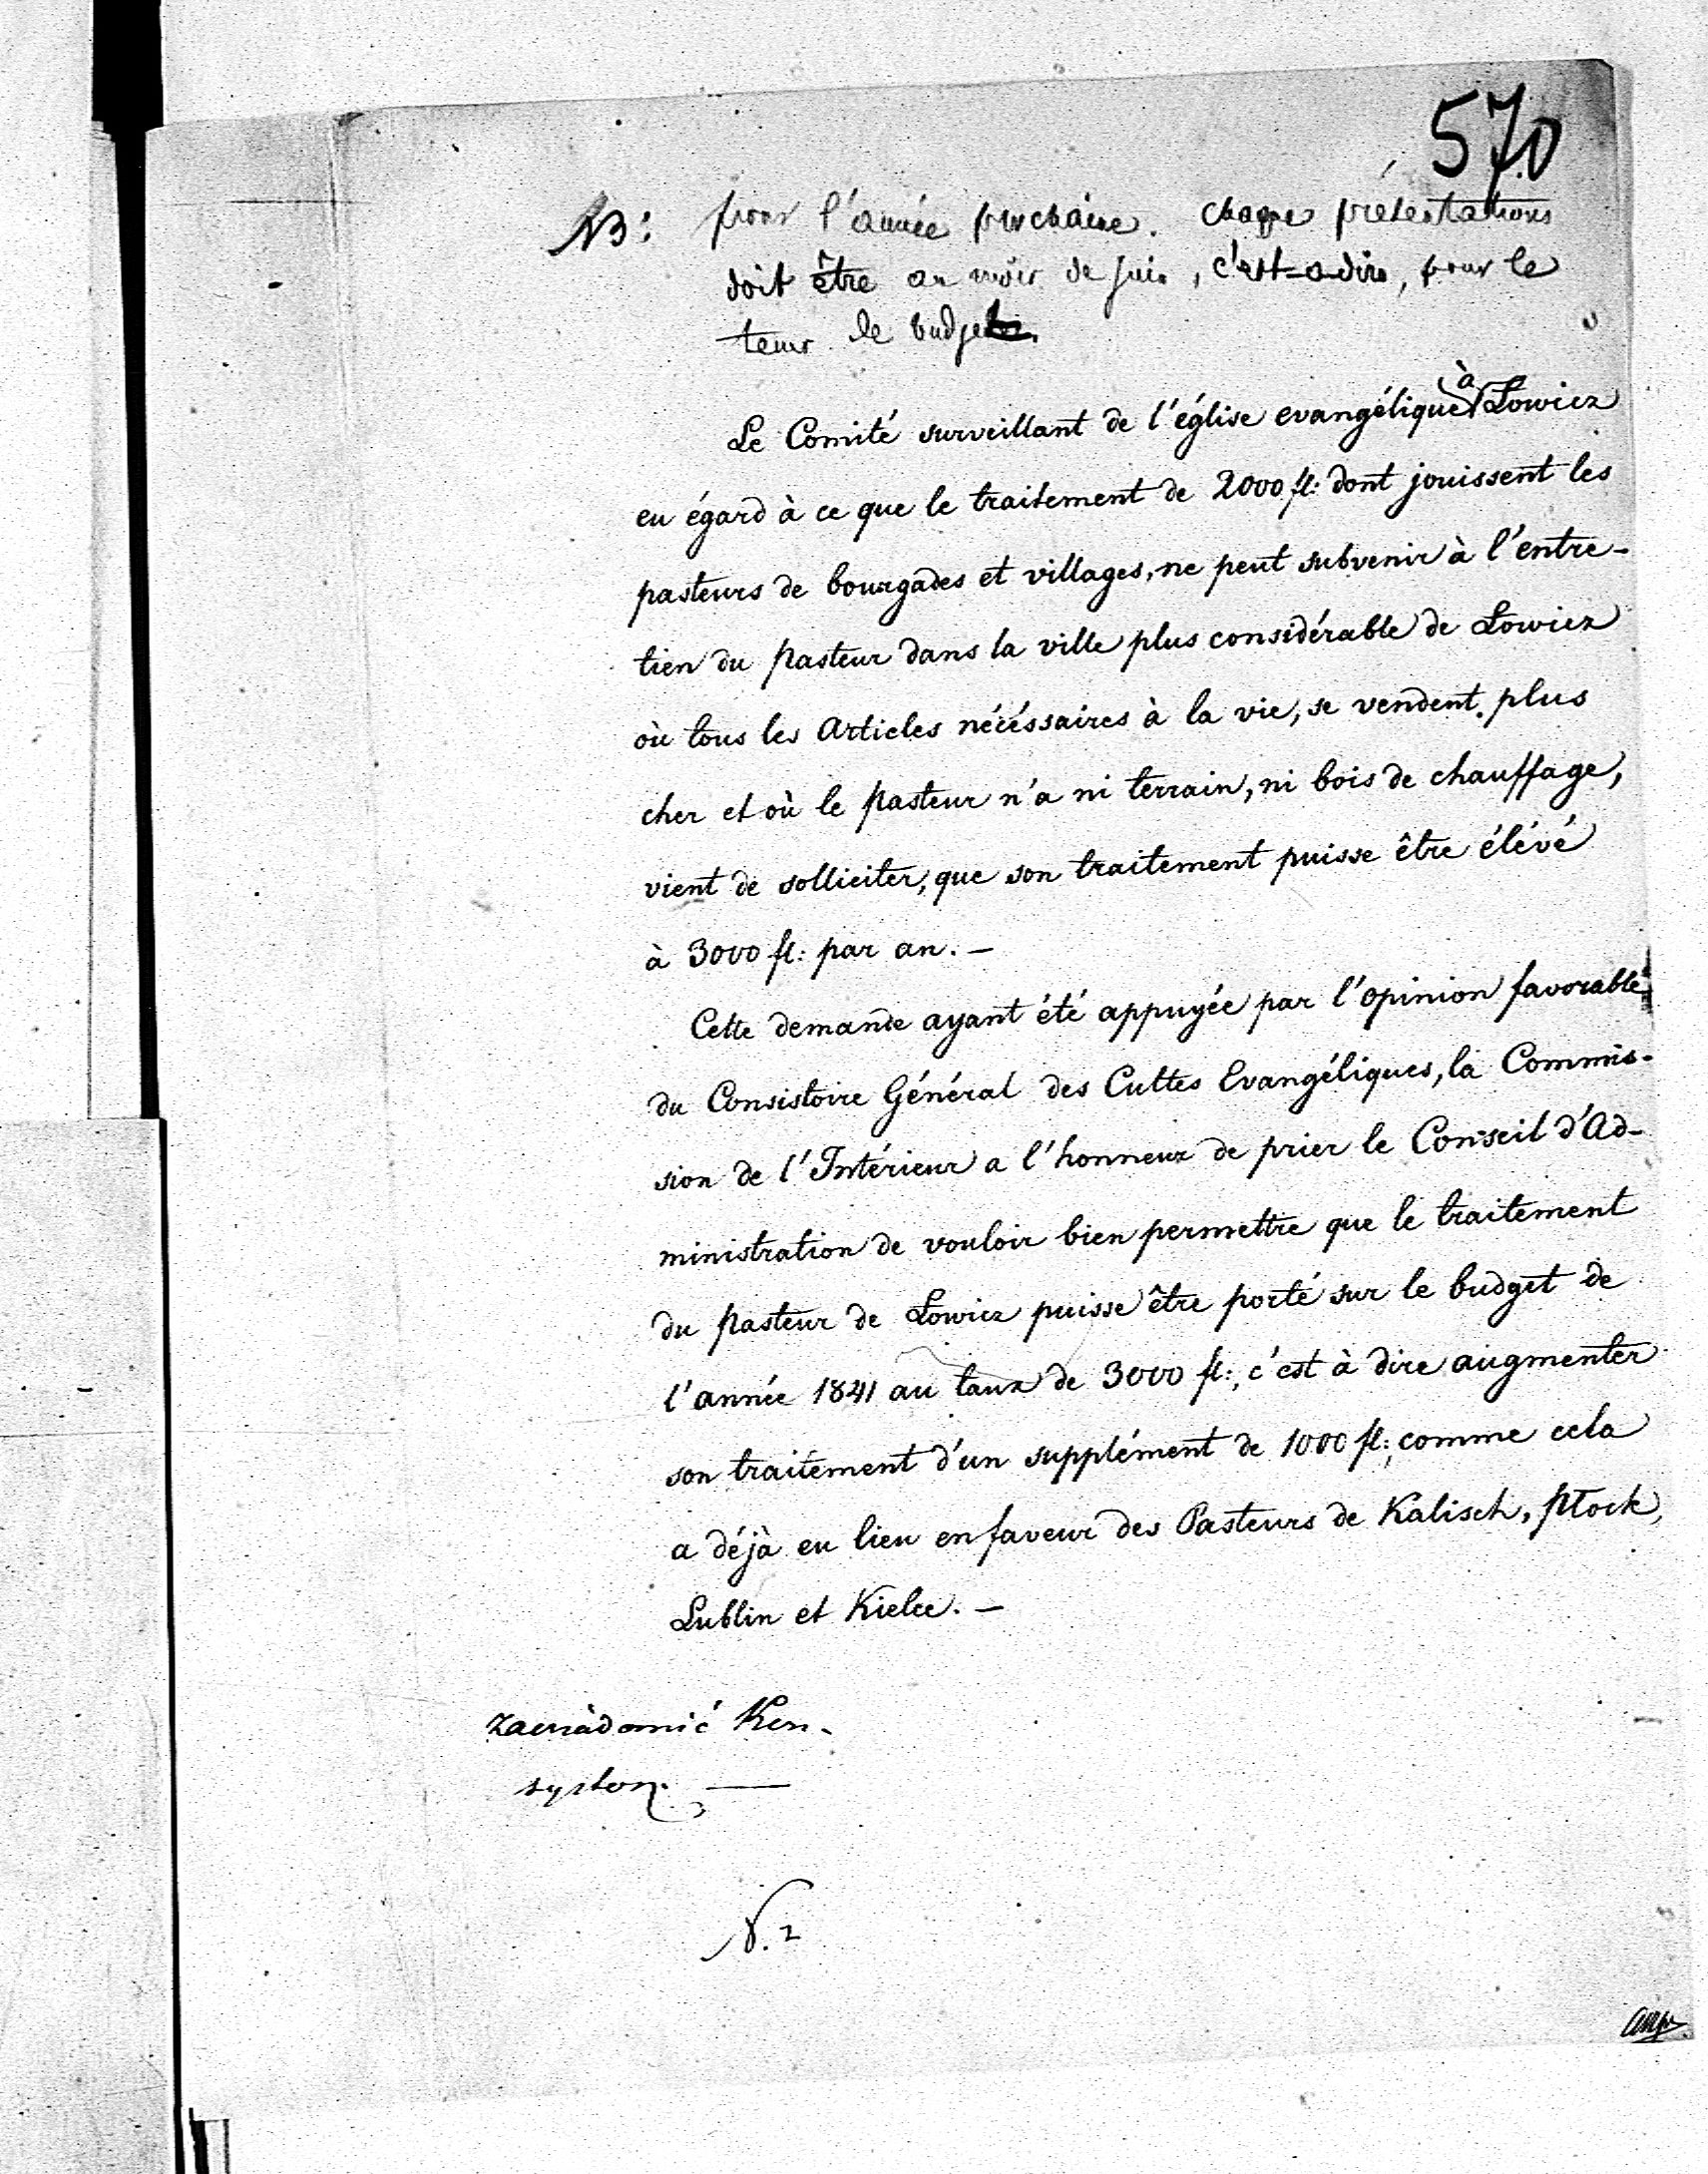 570
NB: pour l'année prochaine. chaque présentations
doit être au mois de juin, c'est-a-dire, pour le
tems de budget.
Le Comité surveillant de l'église evangélique à Łowicz
eu égard à ce que le traitement de 2000 fl: dont jouissent les
pasteurs de bourgades et villages, ne peut subvenir à l'entre-
tien du Pasteur dans la ville plus considérable de Łowicz
où tous les Articles nécéssaires à la vie, se vendent plus
cher et où le Pasteur n'a ni terrain, ni bois de chauffage,
vient de solliciter, que son traitement puisse être élévé
à 3000 fl: par an. —
Cette demande ayant été appuyée par l'opinion favorable
du Consistoire Général des Cultes Evangéliques, la Commis-
sion de l'Intérieur a l'honneur de prier le Conseil d'Ad-
ministration de vouloir bien permettre que le traitement
du Pasteur de Łowicz puisse être porté sur le budget de
l'année 1841 au taux de 3000 fl:, c'est à dire augmenter
son traitement d'un supplément de 1000 fl:, comme cela
a déjà eu lieu en faveur des Pasteurs de Kalisch, Płock,
Lublin et Kielce. —
zawiadomić Kon-
systorz. —
N. 2